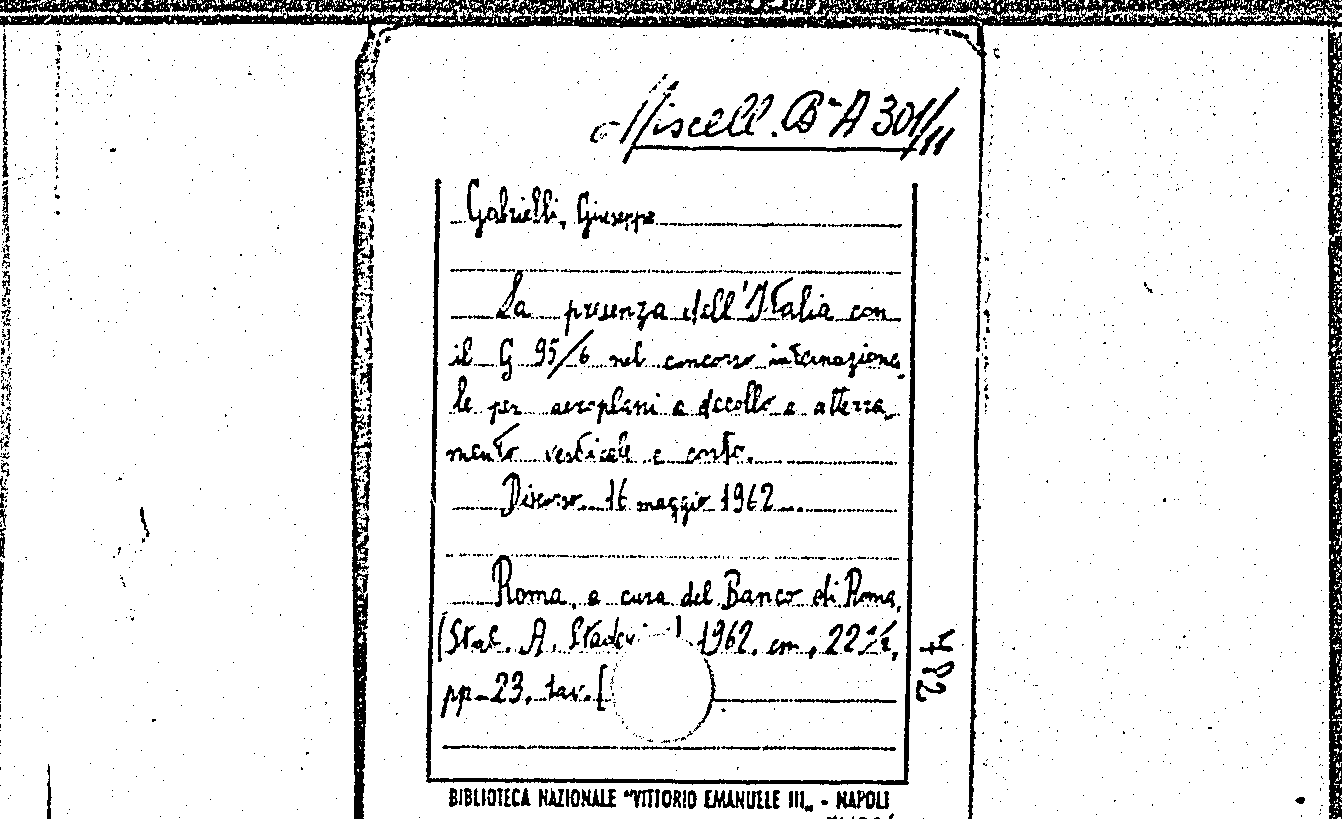 Miscell. Bª A 301/11
Gabrielli, Giuseppe
La presenza dell'Italia con
il G 95/6 nel concorso internaziona-
le per aeroplani a decollo e atterra-
mento verticale e corto.
Discorso. 16 maggio 1962.
Roma, a cura del Banco di Roma,
(Stab. A. 1962. cm. 22 ½,
pp. 23, tav. [
782
BIBLIOTECA NAZIONALE "VITTORIO EMANUELE III„ - NAPOLI